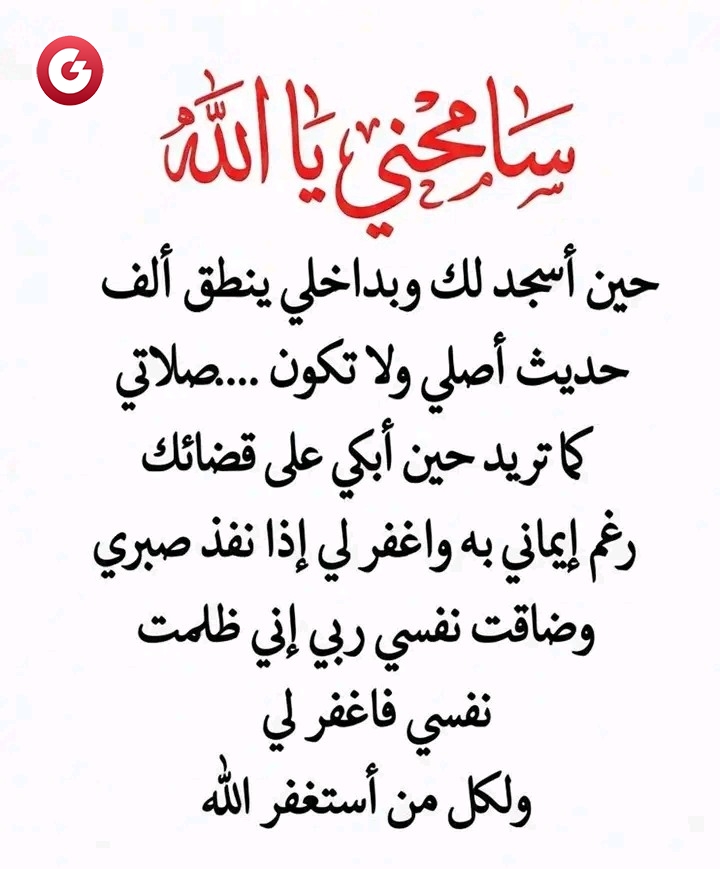 سَامحني يَا اللَّهُ
حين أسجد لك وبداخلي ينطق ألف
حديث أصلي ولا تكون ....صلاتي
كما تريد حين أبكي على قضائك
رغم إيماني به واغفر لي إذا نفذ صبري
وضاقت نفسي ربي إني ظلمت
نفسي فاغفر لي
ولكل من أستغفر الله